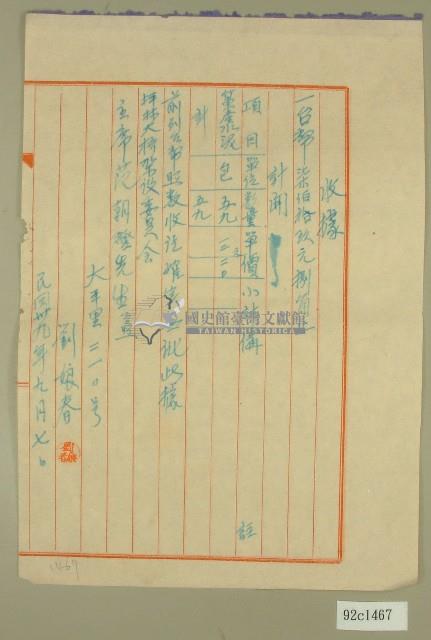 收據
一台幣柒佰拾玖元捌角正
計開
項目 單位 數量 單價 小計 備註
水泥 包 五九
計 五九
前列台幣照數收訖確實無訛此據
坪林大橋架設委員會
主席范朝燈先生
大平里三一〇号
劉娘春
民國卅九年九月七日
國史館臺灣文獻館
TAIWAN HISTORICA
1467
92c1467